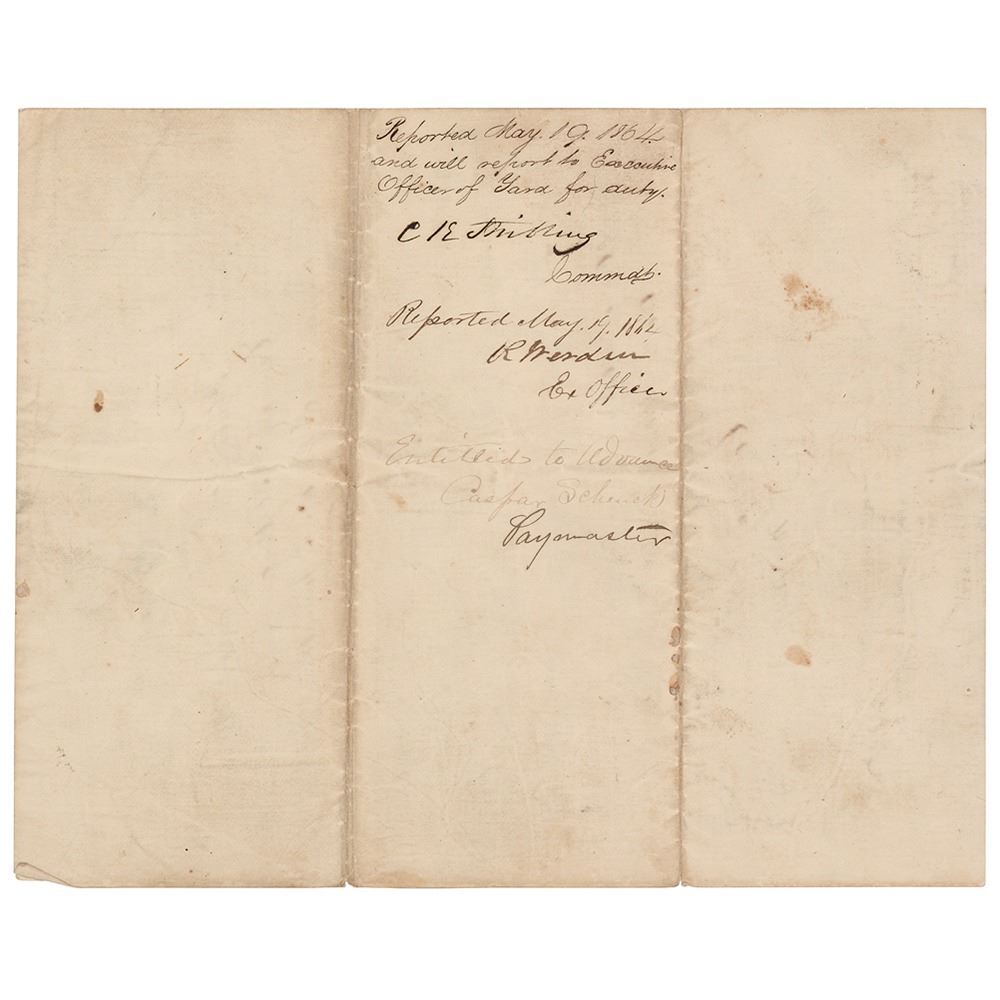 Reported May. 19. 1864.
and will report to Executive
Officer of Yard for duty.
C K Stribling
Commdt.
Reported May. 19. 1864
R Werden
Ex Officer
Entitled to Advance
Caspar Schenck
Paymaster